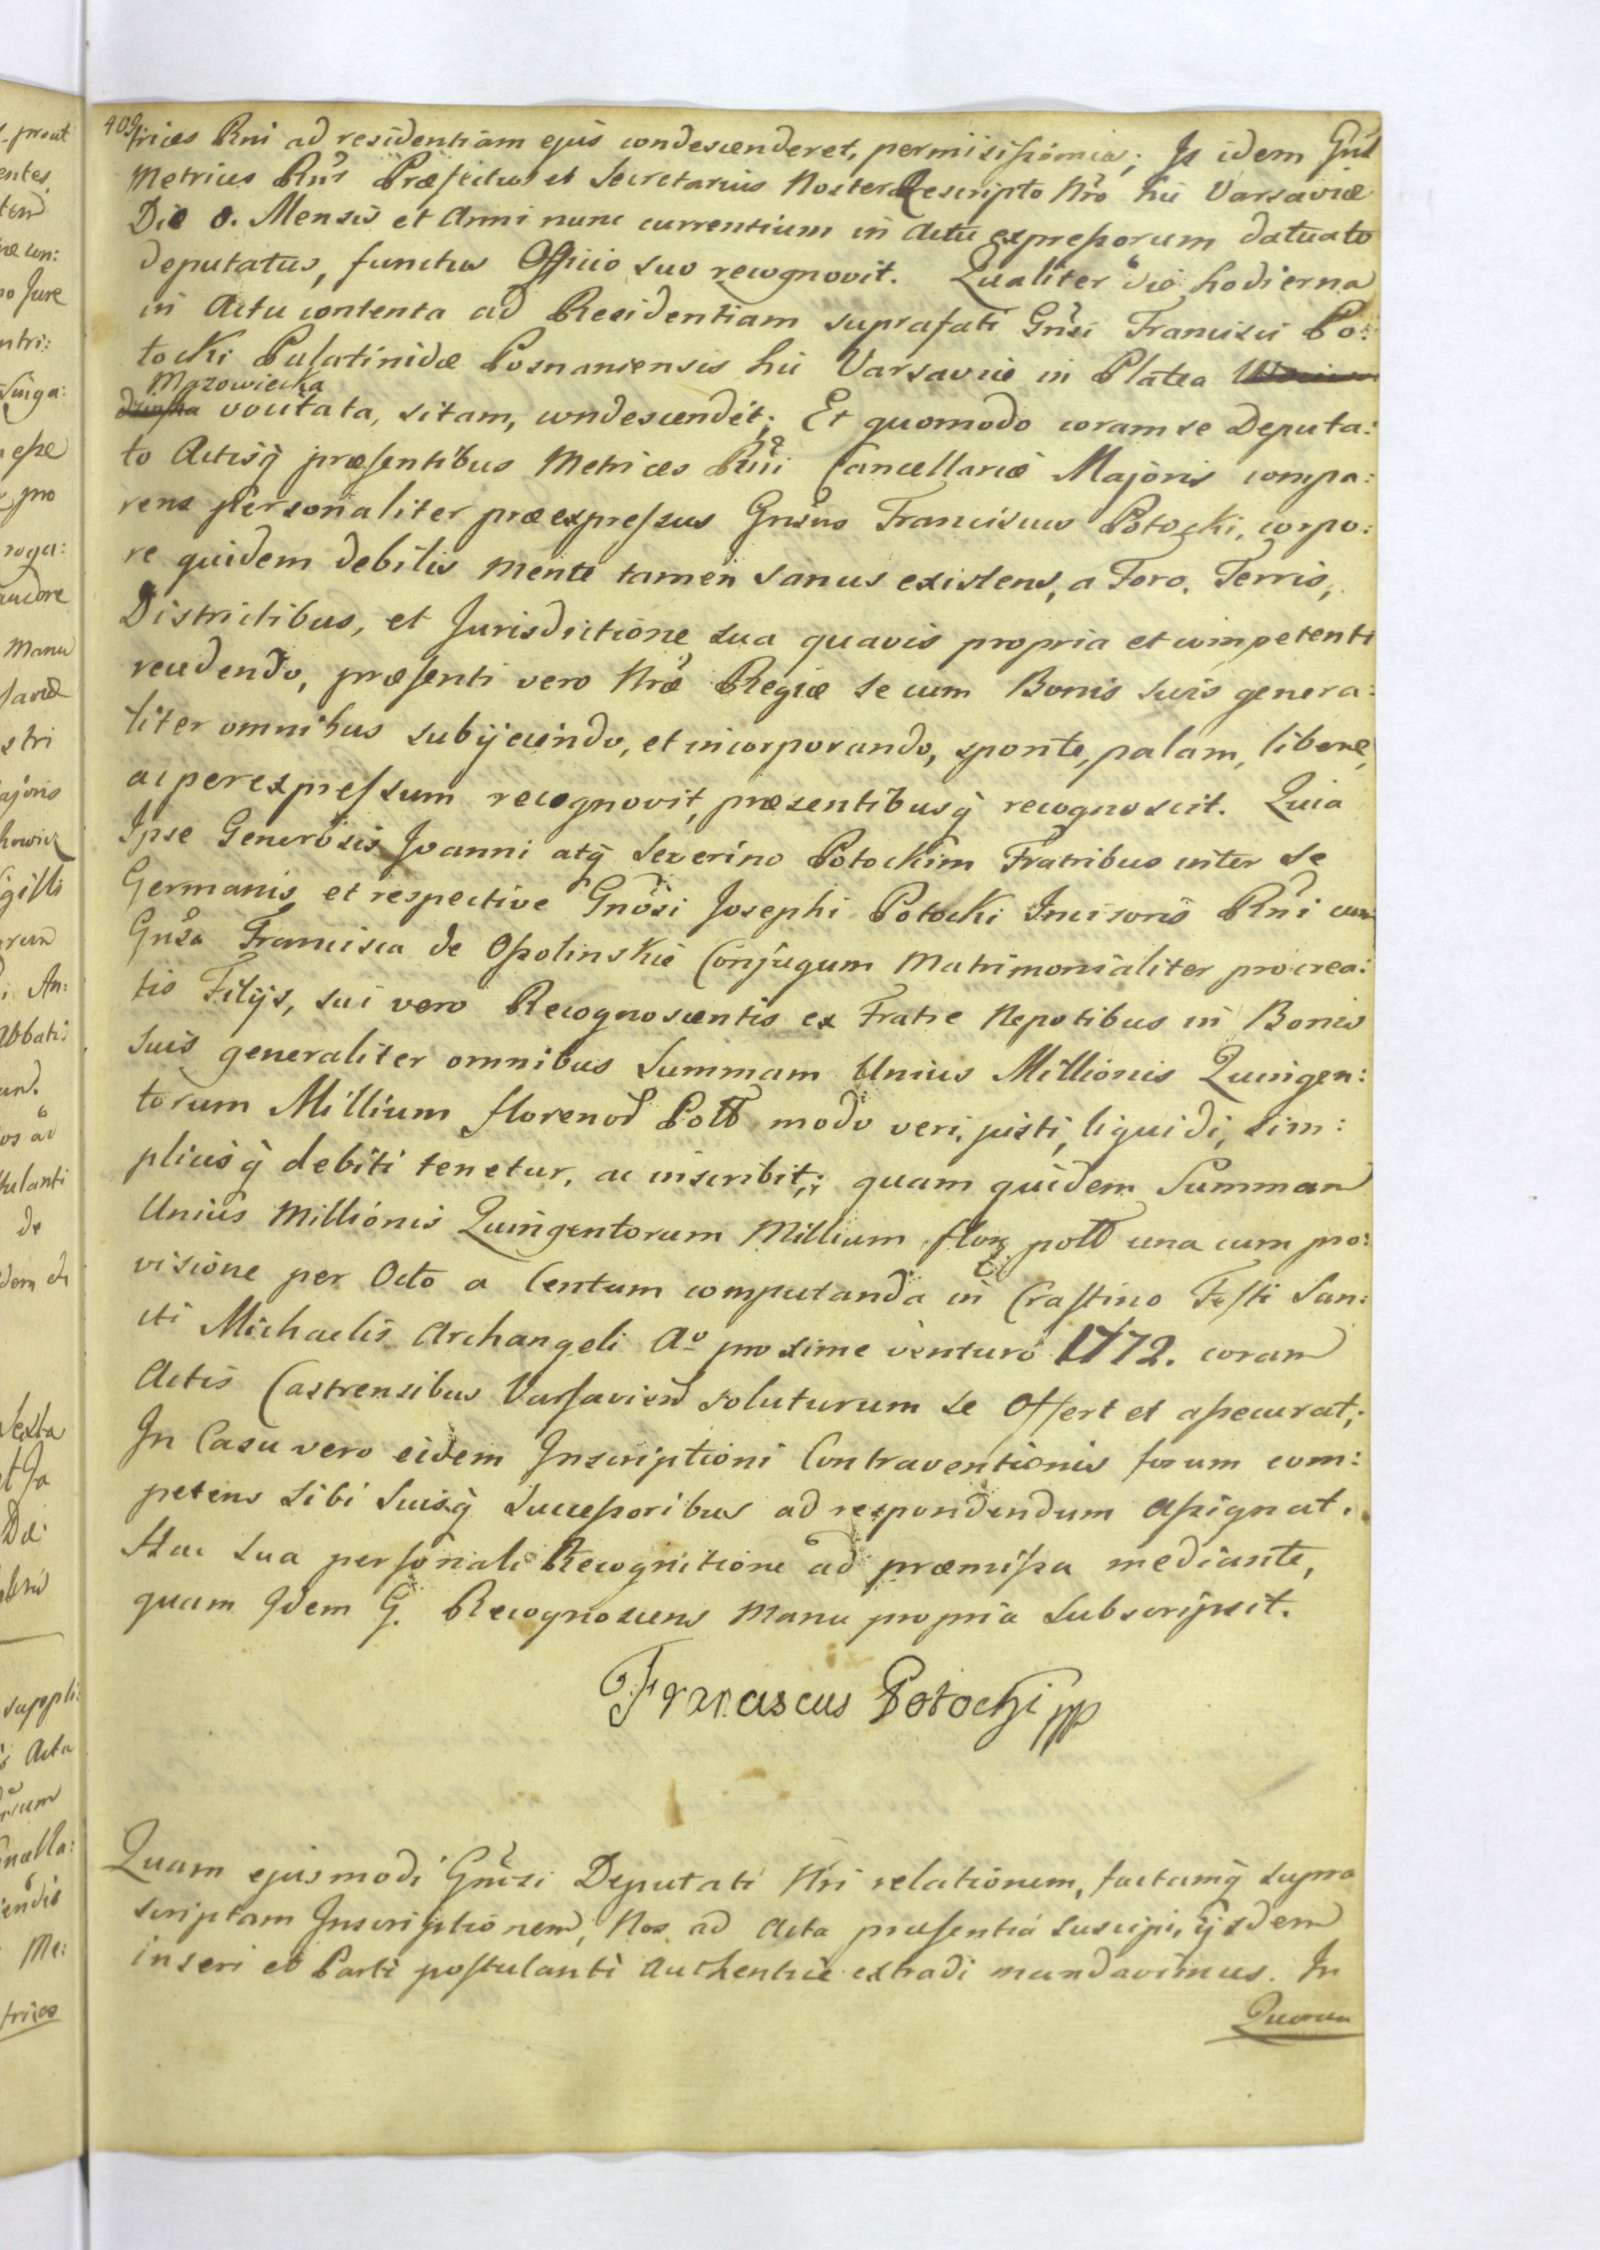 409
trices Rni ad residentiam ejus condescenderet, permisissimus; Is idem Gnl
Metrices Rni Præfectus et Secretarius Noster Rescripto Nro hic Varsaviæ
Die 8. Mensis et Anni nunc currentium in Actu expressorum datuato
deputatus, functus Officio suo recognovit. Qualiter die hodierna
in Actu contenta ad Residentiam suprafati Gnsi Francisci Po:
tocki Palatinidæ Posnaniensis hic Varsaviæ in Platea
Mazowiecka
vocitata, sitam, condescendit; Et quomodo coram se Deputa:
to Actisq̃ præsentibus Metrices Rni Cancellariæ Majoris compa:
rens personaliter præexpressus Gnsus Franciscus Potocki, corpo:
re quidem debilis mente tamen sanus existens, a Foro, Terris,
Districtibus, et Jurisdictione sua quavis propria et competenti
recedendo, præsenti vero Nræ Regiæ se cum Bonis suis genera:
liter omnibus subijciendo, et incorporando, sponte, palam, libere,
ac per expressum recognovit, præsentibusq̃ recognoscit. Quia
Ipse Generosis Joanni atq̃ Severino Potockim Fratribus inter se
Germanis et respective Gnosi Josephi Potocki Incisoris Rni cum
Gnsa Francisca de Ossolinskie Conjugum Matrimonialiter procrea:
tis Filijs, sui vero Recognoscentis ex Fratre Nepotibus in Bonis
suis generaliter omnibus Summam Unius Millionis Quingen:
torum Millium florenoR Poll modo veri, justi, liquidi, sim:
plicisq̃ debiti tenetur, ac inscribit; quam quidem Summam
Unius Millionis Quingentorum Millium flor poll una cum pro:
visione per Octo a Centum computanda in Crastino Festi San:
cti Michaelis Archangeli Aº proxime venturo 1772. coram
Actis Castrensibus Varsavien soluturum se Offert et assecurat;
In Casu vero eidem Inscriptioni Contraventionis forum com:
petens sibi suisq̃ Successoribus ad respondendum assignat.
Hac sua personali Recognitione ad præmissa mediante,
quam Idem G. Recognoscens manu propria subscripsit.
Franciscus Potocki pp
Quam ejusmodi Gnsi Deputati Nri relationem, factamq̃ supra
scriptam Inscriptionem, Nos ad Acta præsentia suscipi, ijsdem
inseri et Parti postulanti authentice extradi mandavimus. In
Quorum